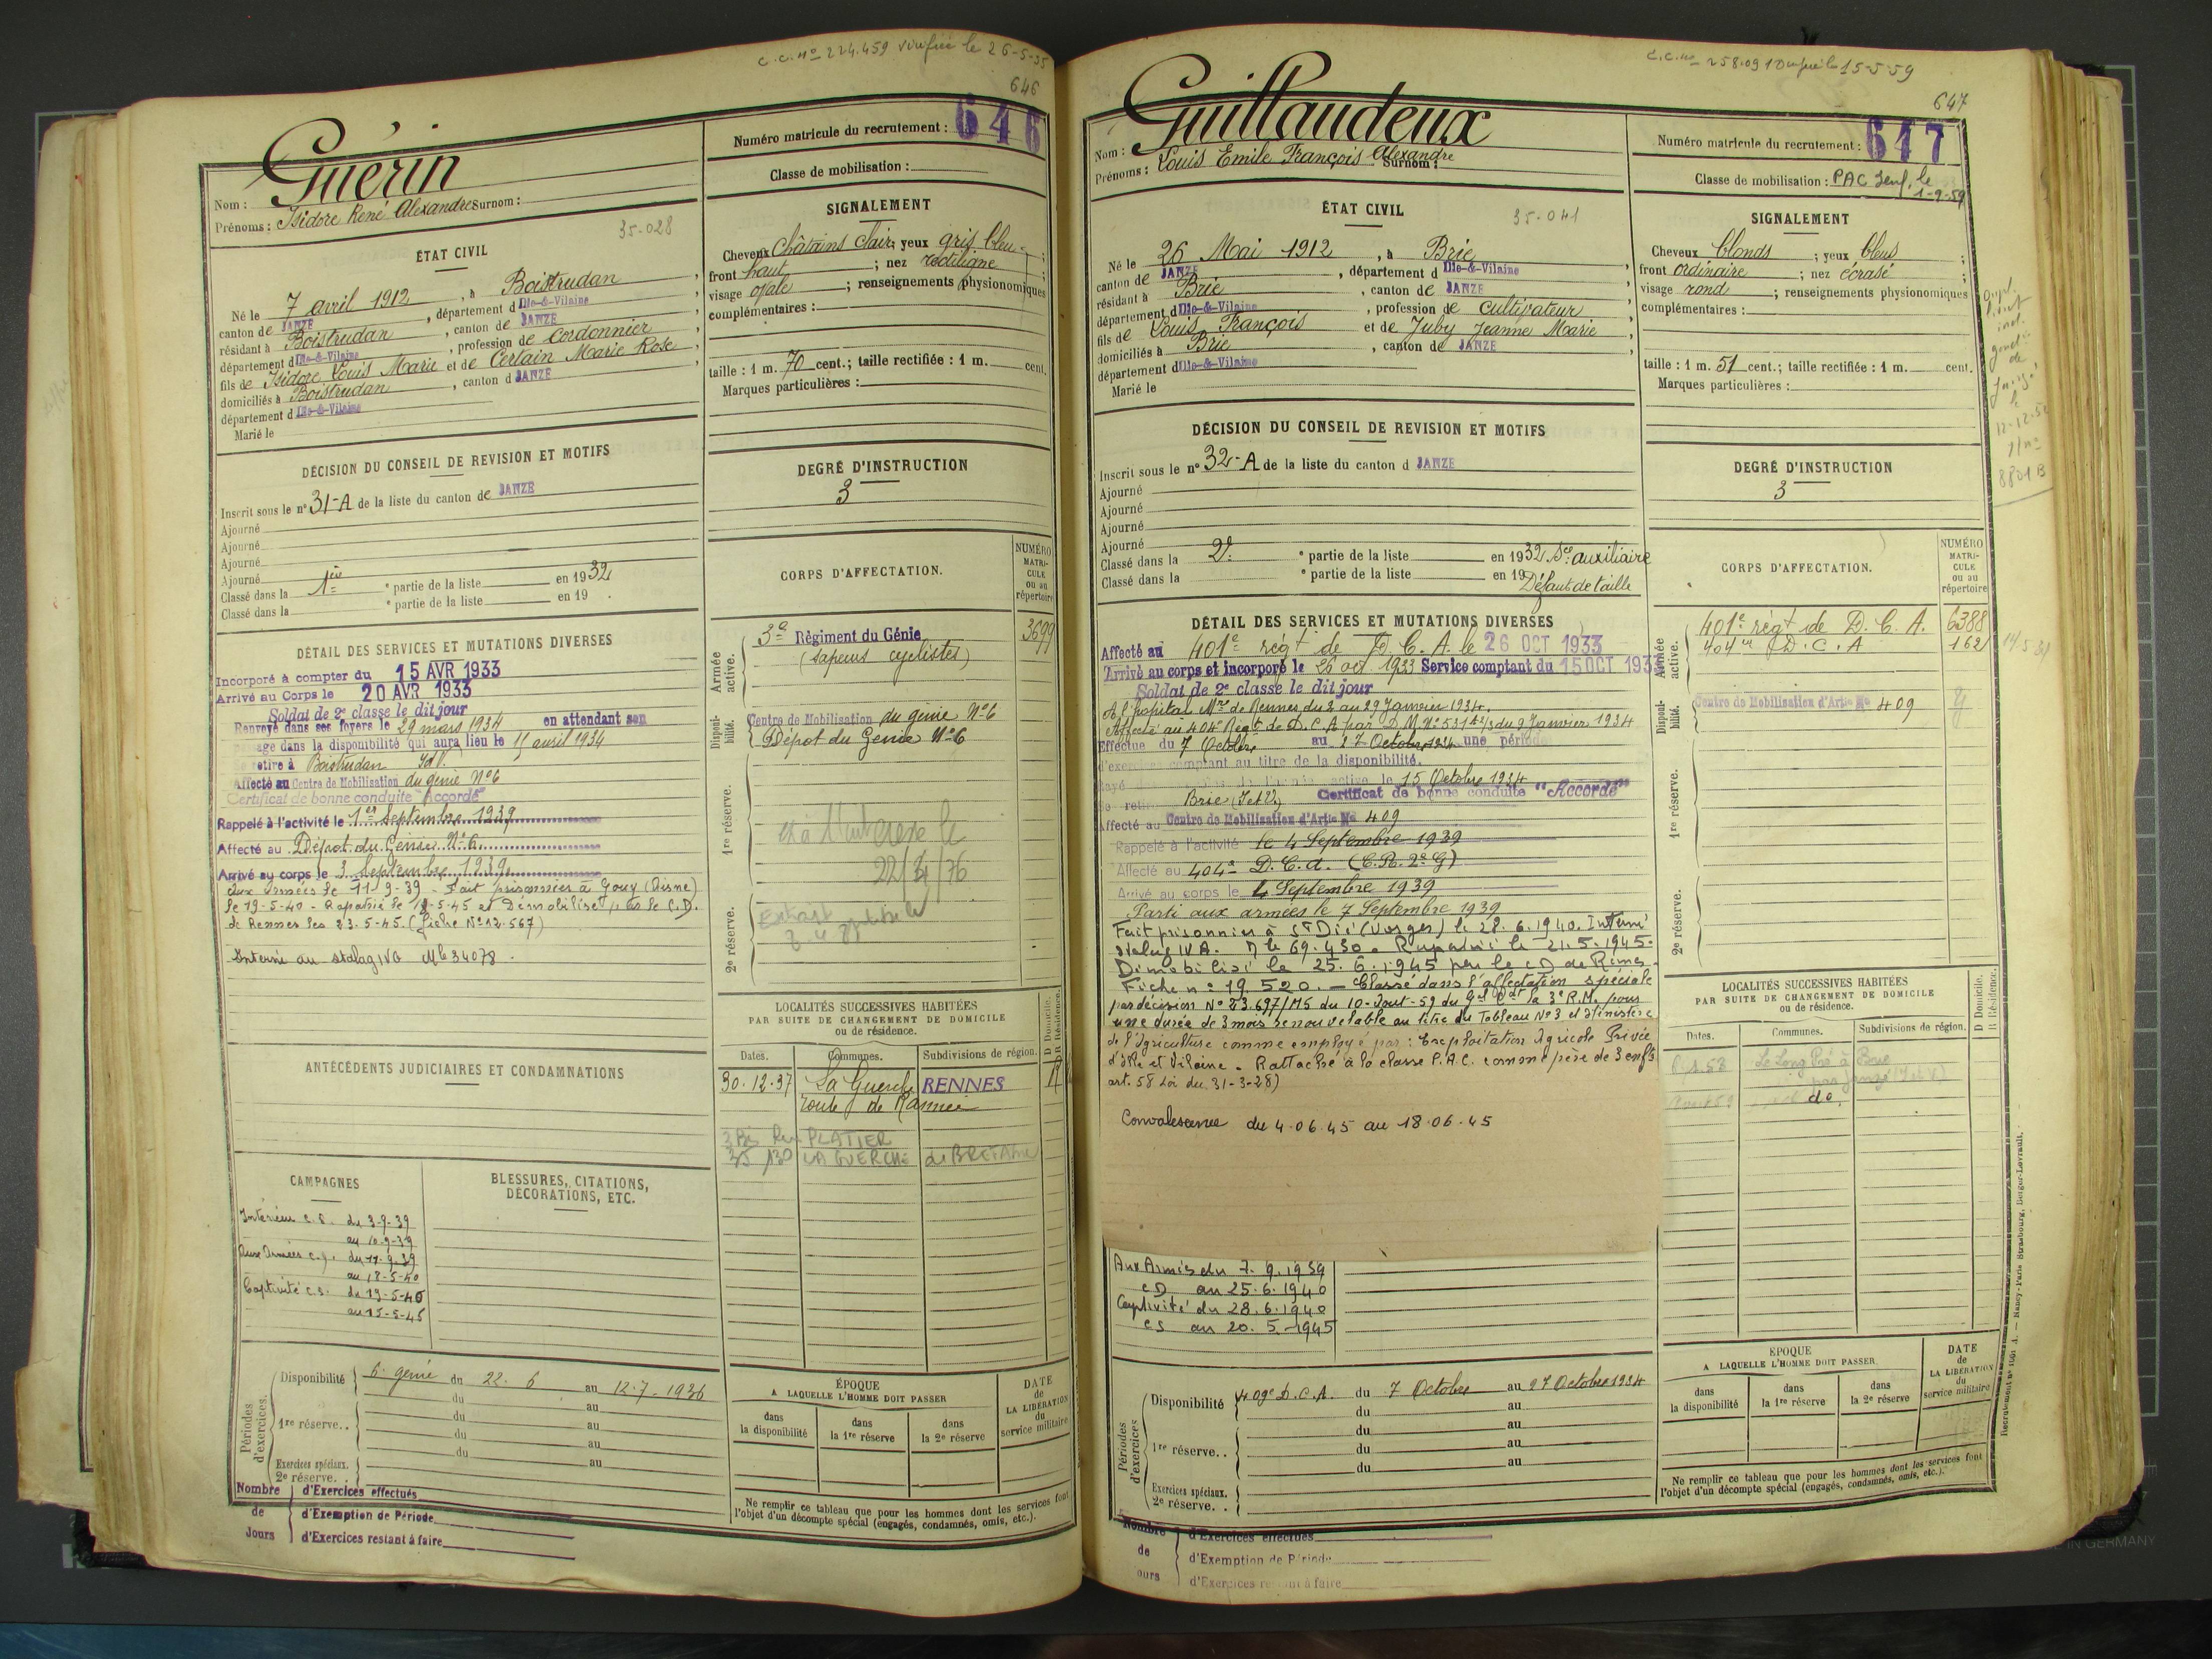 C.C. nº 224.459 vérifiée le 26-5-35
646
Guérin
Nom :
Prénoms : Isidore René Alexandre Surnom :
Numéro matricule du recrutement : 646
Classe de mobilisation :
35-028
ÉTAT CIVIL
Né le 7 avril 1912, à Boistrudan,
canton de JANZE, département d Ille-&-Vilaine,
résidant à Boistrudan, canton de JANZE,
département d Ille-&-Vilaine, profession de Cordonnier,
fils de Isidore Louis Marie et de Certain Marie Rose,
domiciliés à Boistrudan, canton d JANZE,
département d Ille-&-Vilaine
Marié le
SIGNALEMENT
Cheveux Châtains clair; yeux gris bleu;
front haut; nez rectiligne;
visage ovale; renseignements physionomiques
complémentaires :
taille : 1 m. 70 cent.; taille rectifiée : 1 m. cent.
Marques particulières :
DÉCISION DU CONSEIL DE REVISION ET MOTIFS
Inscrit sous le nº 31-A de la liste du canton de JANZE
Ajourné
Ajourné
Ajourné
Ajourné
Classé dans la 1ère partie de la liste en 1932
Classé dans la e partie de la liste en 19
DEGRÉ D'INSTRUCTION
3
DÉTAIL DES SERVICES ET MUTATIONS DIVERSES
Incorporé à compter du 15 AVR 1933
Arrivé au Corps le 20 AVR 1933
Soldat de 2e classe le dit jour
Renvoyé dans ses foyers le 29 mars 1934 en attendant son
passage dans la disponibilité qui aura lieu le 15 avril 1934
se retire à Boistrudan I&V.
Affecté au Centre de Mobilisation du génie Nº6
Certificat de bonne conduite "Accordé"
Rappelé à l'activité le 1er Septembre 1939
Affecté au Dépôt du Génie Nº 6
Arrivé au corps le 3 Septembre 1939
Aux armées le 11-9-39 - Fait prisonnier à Gouy (Aisne)
le 19-5-40 - Rapatrié le 18-5-45 et Démobilisé par le C.D.
de Rennes les 23.5.45. (fiche Nº 12.567)
Interné au stalag IVG Mle 34078.
CORPS D'AFFECTATION.
NUMÉRO MATRICULE ou au répertoire
Armée active.
3e Régiment du Génie 3699
(sapeurs cyclistes)
Disponibilité.
Centre de Mobilisation du génie Nº6
Dépôt du Génie Nº6
1re réserve.
22/4/76
2e réserve.
Extrait
ANTÉCÉDENTS JUDICIAIRES ET CONDAMNATIONS
LOCALITÉS SUCCESSIVES HABITÉES
PAR SUITE DE CHANGEMENT DE DOMICILE
ou de résidence.
D Domicile. R Résidence.
Dates. Communes. Subdivisions de région.
30.12.37 La Guerche RENNES R
route de Rannée
3 Bis Rue PLATIER
35130 LA GUERCHE de BRETAGNE
CAMPAGNES
Intérieur C.S. du 3-9-39
au 10-9-39
Aux Armées C.D. du 11-9-39
au 18-5-40
Captivité C.S. du 19-5-40
au 15-5-45
BLESSURES, CITATIONS,
DÉCORATIONS, ETC.
Périodes d'exercices.
Disponibilité 6e génie du 22.6 au 12.7-1936
du au
1re réserve. . du au
du au
Exercices spéciaux. du au
2e réserve. .
Nombre de Jours
d'Exercices effectués
d'Exemption de Période
d'Exercices restant à faire
ÉPOQUE
A LAQUELLE L'HOMME DOIT PASSER
dans la disponibilité
dans la 1re réserve
dans la 2e réserve
DATE de LA LIBÉRATION du service militaire
Ne remplir ce tableau que pour les hommes dont les services font
l'objet d'un décompte spécial (engagés, condamnés, omis, etc.).
C.C. nº 258.091 15-5-59
647
Guillaudeux
Nom :
Prénoms : Louis Emile François Alexandre Surnom :
Numéro matricule du recrutement : 647
Classe de mobilisation : PAC 3enf. le
1-9-59
35-041
ÉTAT CIVIL
Né le 26 Mai 1912, à Brie,
canton de JANZE, département d Ille-&-Vilaine,
résidant à Brie, canton de JANZE,
département d Ille-&-Vilaine, profession de cultivateur,
fils de Louis François et de Juby Jeanne Marie,
domiciliés à Brie, canton de JANZE,
département d Ille-&-Vilaine
Marié le
SIGNALEMENT
Cheveux blonds; yeux bleus;
front ordinaire; nez écrasé;
visage rond; renseignements physionomiques
complémentaires :
taille : 1 m. 51 cent.; taille rectifiée : 1 m. cent.
Marques particulières :
12-12-52
8801 B
DÉCISION DU CONSEIL DE REVISION ET MOTIFS
Inscrit sous le nº 32-A de la liste du canton d JANZE
Ajourné
Ajourné
Ajourné
Ajourné
Classé dans la 2e partie de la liste en 1932 Sce auxiliaire
Classé dans la e partie de la liste en 19 Défaut de taille
DEGRÉ D'INSTRUCTION
3
DÉTAIL DES SERVICES ET MUTATIONS DIVERSES
Affecté au 401e régt de D.C.A. le 26 OCT 1933
Arrivé au corps et incorporé le 26 oct 1933 Service comptant du 15 OCT 1933
Soldat de 2e classe le dit jour
A l'hôpital Mre de Rennes du 2 au 29 Janvier 1934.
Affecté au 404e Régt de D.C.A par D.M. Nº 531 du 9 Janvier 1934
Effectue du 7 Octobre au 27 Octobre 1934 une période
d'exercices comptant au titre de la disponibilité.
Rayé de l'armée active le 15 Octobre 1934
Se retire Brie (I et V.) Certificat de bonne conduite "Accordé"
Affecté au Centre de Mobilisation d'Artie Nº 409
Rappelé à l'activité le 4 Septembre 1939
Affecté au 404e D.C.A. (C.R. 2e G)
Arrivé au corps le 4 Septembre 1939
Parti aux armées le 7 Septembre 1939
Fait prisonnier à St Dié (Vosges) le 28.6.1940. Interné
stalag IV A. Mle 69.430. Rapatrié le 21.5-1945.
Démobilisé le 25.6.1945 par le CD de Rennes.
Fiche nº 19.520. - Classé dans l'affectation spéciale
par décision Nº 23.697/MS du 10-Aout-59 du Gal Cdt la 3e R.M. pour
une durée de 3 mois renouvelable au titre du Tableau Nº3 et Ministère
de l'Agriculture comme employé par : Exploitation Agricole Privée
d'Ille et Vilaine. Rattaché à la classe P.A.C. comme père de 3 enfts
art. 58 loi du 31-3-28)
Convalescence du 4.06.45 au 18.06.45
CORPS D'AFFECTATION.
NUMÉRO MATRICULE ou au répertoire
Armée active.
401e régt de D.C.A. 6388
404e D.C.A 162
Disponibilité.
Centre de Mobilisation d'Artie Nº 409
1re réserve.
2e réserve.
LOCALITÉS SUCCESSIVES HABITÉES
PAR SUITE DE CHANGEMENT DE DOMICILE
ou de résidence.
D Domicile. R Résidence.
Dates. Communes. Subdivisions de région.
Le Long Pré à Brie
par Janzé (I et V)
do
Aux Armées du 7.9.1939
CD au 25.6.1940
Captivité du 28.6.1940
CS au 20.5-1945
Périodes d'exercices
Disponibilité 409e D.C.A. du 7 Octobre au 27 Octobre 1934
du au
1re réserve. . du au
du au
du au
Exercices spéciaux.
2e réserve. .
Nombre de Jours
d'Exercices effectués
d'Exemption de Période
d'Exercices restant à faire
ÉPOQUE
A LAQUELLE L'HOMME DOIT PASSER
dans la disponibilité
dans la 1re réserve
dans la 2e réserve
DATE de LA LIBÉRATION du service militaire
Ne remplir ce tableau que pour les hommes dont les services font
l'objet d'un décompte spécial (engagés, condamnés, omis, etc.).
Nancy-Paris-Strasbourg, Berger-Levrault.
IN GERMANY